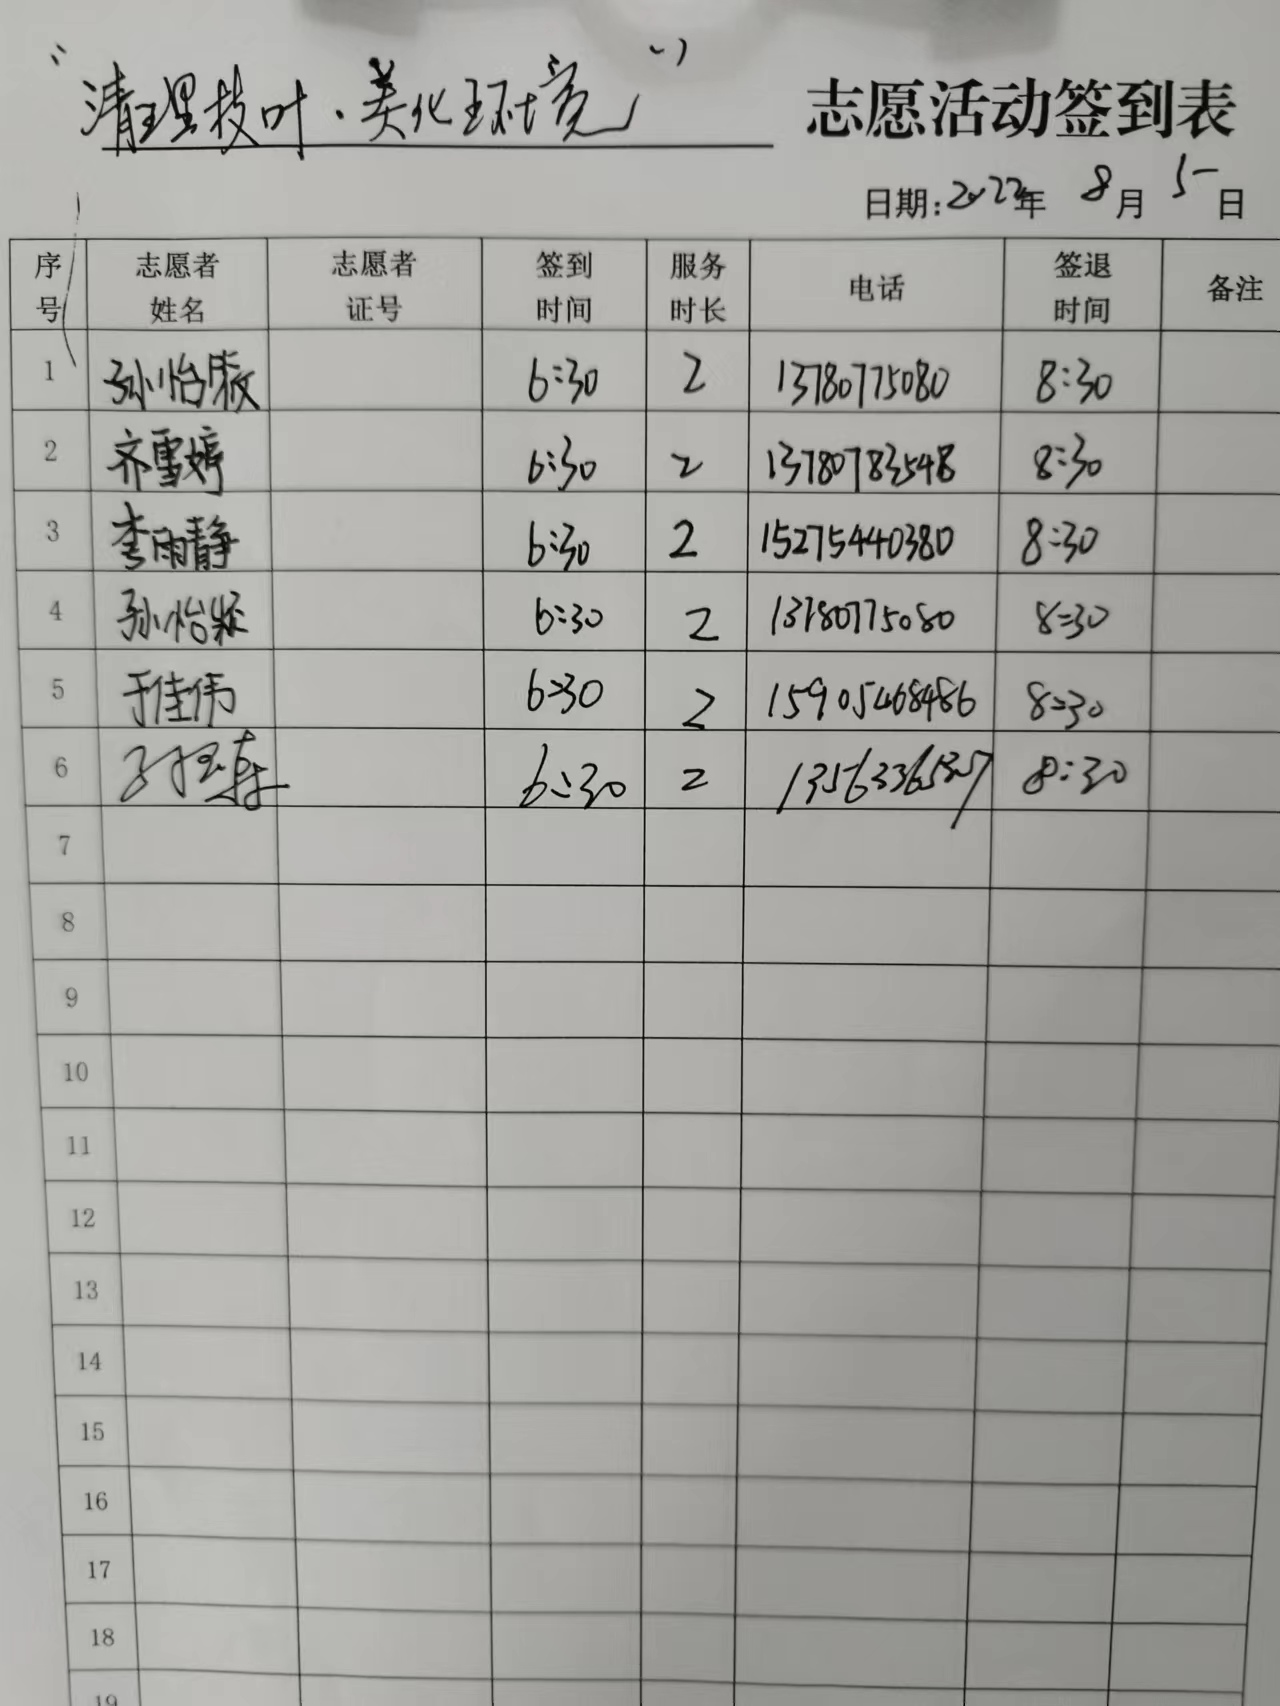 “清理枝叶·美化环境” 志愿活动签到表
日期:2022年 8月 5日
序号 志愿者姓名 志愿者证号 签到时间 服务时长 电话 签退时间 备注
1 孙怡 6:30 2 13780775080 8:30
2 齐雪婷 6:30 2 13780783548 8:30
3 李雨静 6:30 2 15275440380 8:30
4 孙怡 6:30 2 13780775080 8:30
5 于佳伟 6:30 2 15905468486 8:30
6 6:30 2 8:30
7
8
9
10
11
12
13
14
15
16
17
18
19